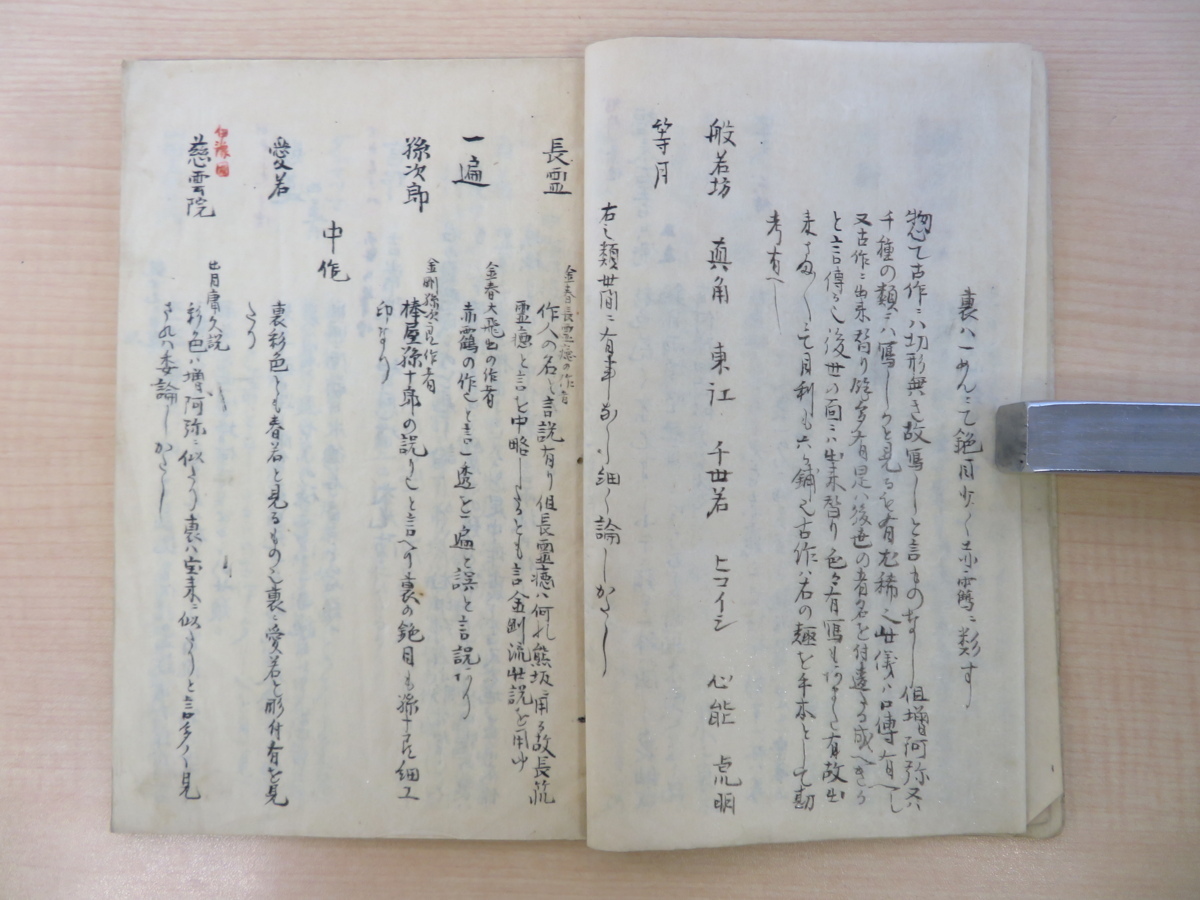 裏ハ一めんニて鉋目少く赤鶴ニ類す
惣て古作ニハ切形無き故写しと言ものなし但増阿弥又ハ
千種の類ニハ写しかと見るも有尤稀之此儀ハ口傳有へし
又古作ニ出来弱り能多有是ハ後世の者名を付違たる成へきか
と言傳る也後世の面ニハ出来替り色々有写も有故出
来
考有へし
般若坊 真角 東江 千世若 ヒコイシ 心能 虎明
等月
右之類世間ニ有事なし細く論しかたし
長霊
金春長霊癋の作者
作人の名と言説有り但長霊癋ハ何れ熊坂ニ用る故長範
霊癋と言を中略したるとも言金剛流此説を用ゆ
一遍
金春大飛出の作者
赤鶴の作也と言一透を一遍と誤と言説あり
孫次郎
金剛孫次郎作者
棒屋孫十郎の誤り也と言へり裏の鉋目も孫十郎細工
印なり
中作
愛若
裏彩色とも春若と見るもの也裏ニ愛若と彫付有を見
たり
伊豫国
慈雲院
廿月庸久説
彩色ハ増阿弥ニ似たり裏ハ宝来ニ似たりと言多く見
されハ委論しかたし